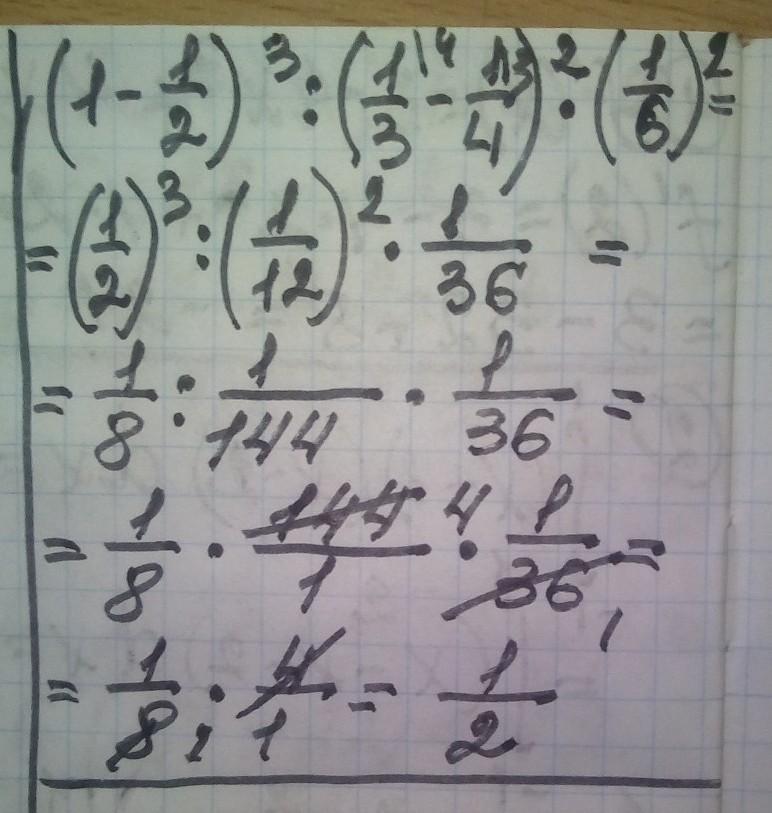 (1 - 1/2)³ : (1/3 \4 - 1/4 \3)² · (1/6)² =
= (1/2)³ : (1/12)² · 1/36 =
= 1/8 : 1/144 · 1/36 =
= 1/8 · 144/1 4 · 1/36 1 =
= 1/8 2 · 4/1 = 1/2